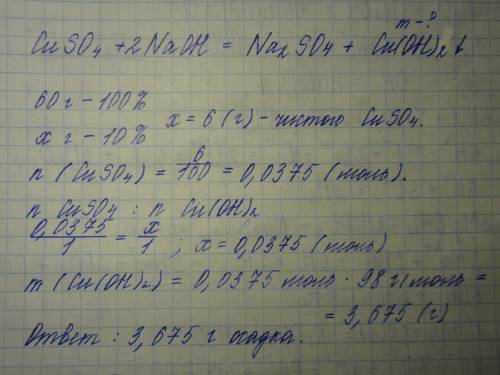 m - ?
CuSO4 + 2NaOH = Na2SO4 + Cu(OH)2 ↓
60 г - 100%
x г - 10%
x = 6 (г) - чистого CuSO4.
n (CuSO4) = 6/160 = 0,0375 (моль).
n CuSO4 : n Cu(OH)2
0,0375/1 = x/1 ; x = 0,0375 (моль)
m (Cu(OH)2) = 0,0375 моль · 98 г/моль =
= 3,675 (г)
Ответ : 3,675 г осадка.